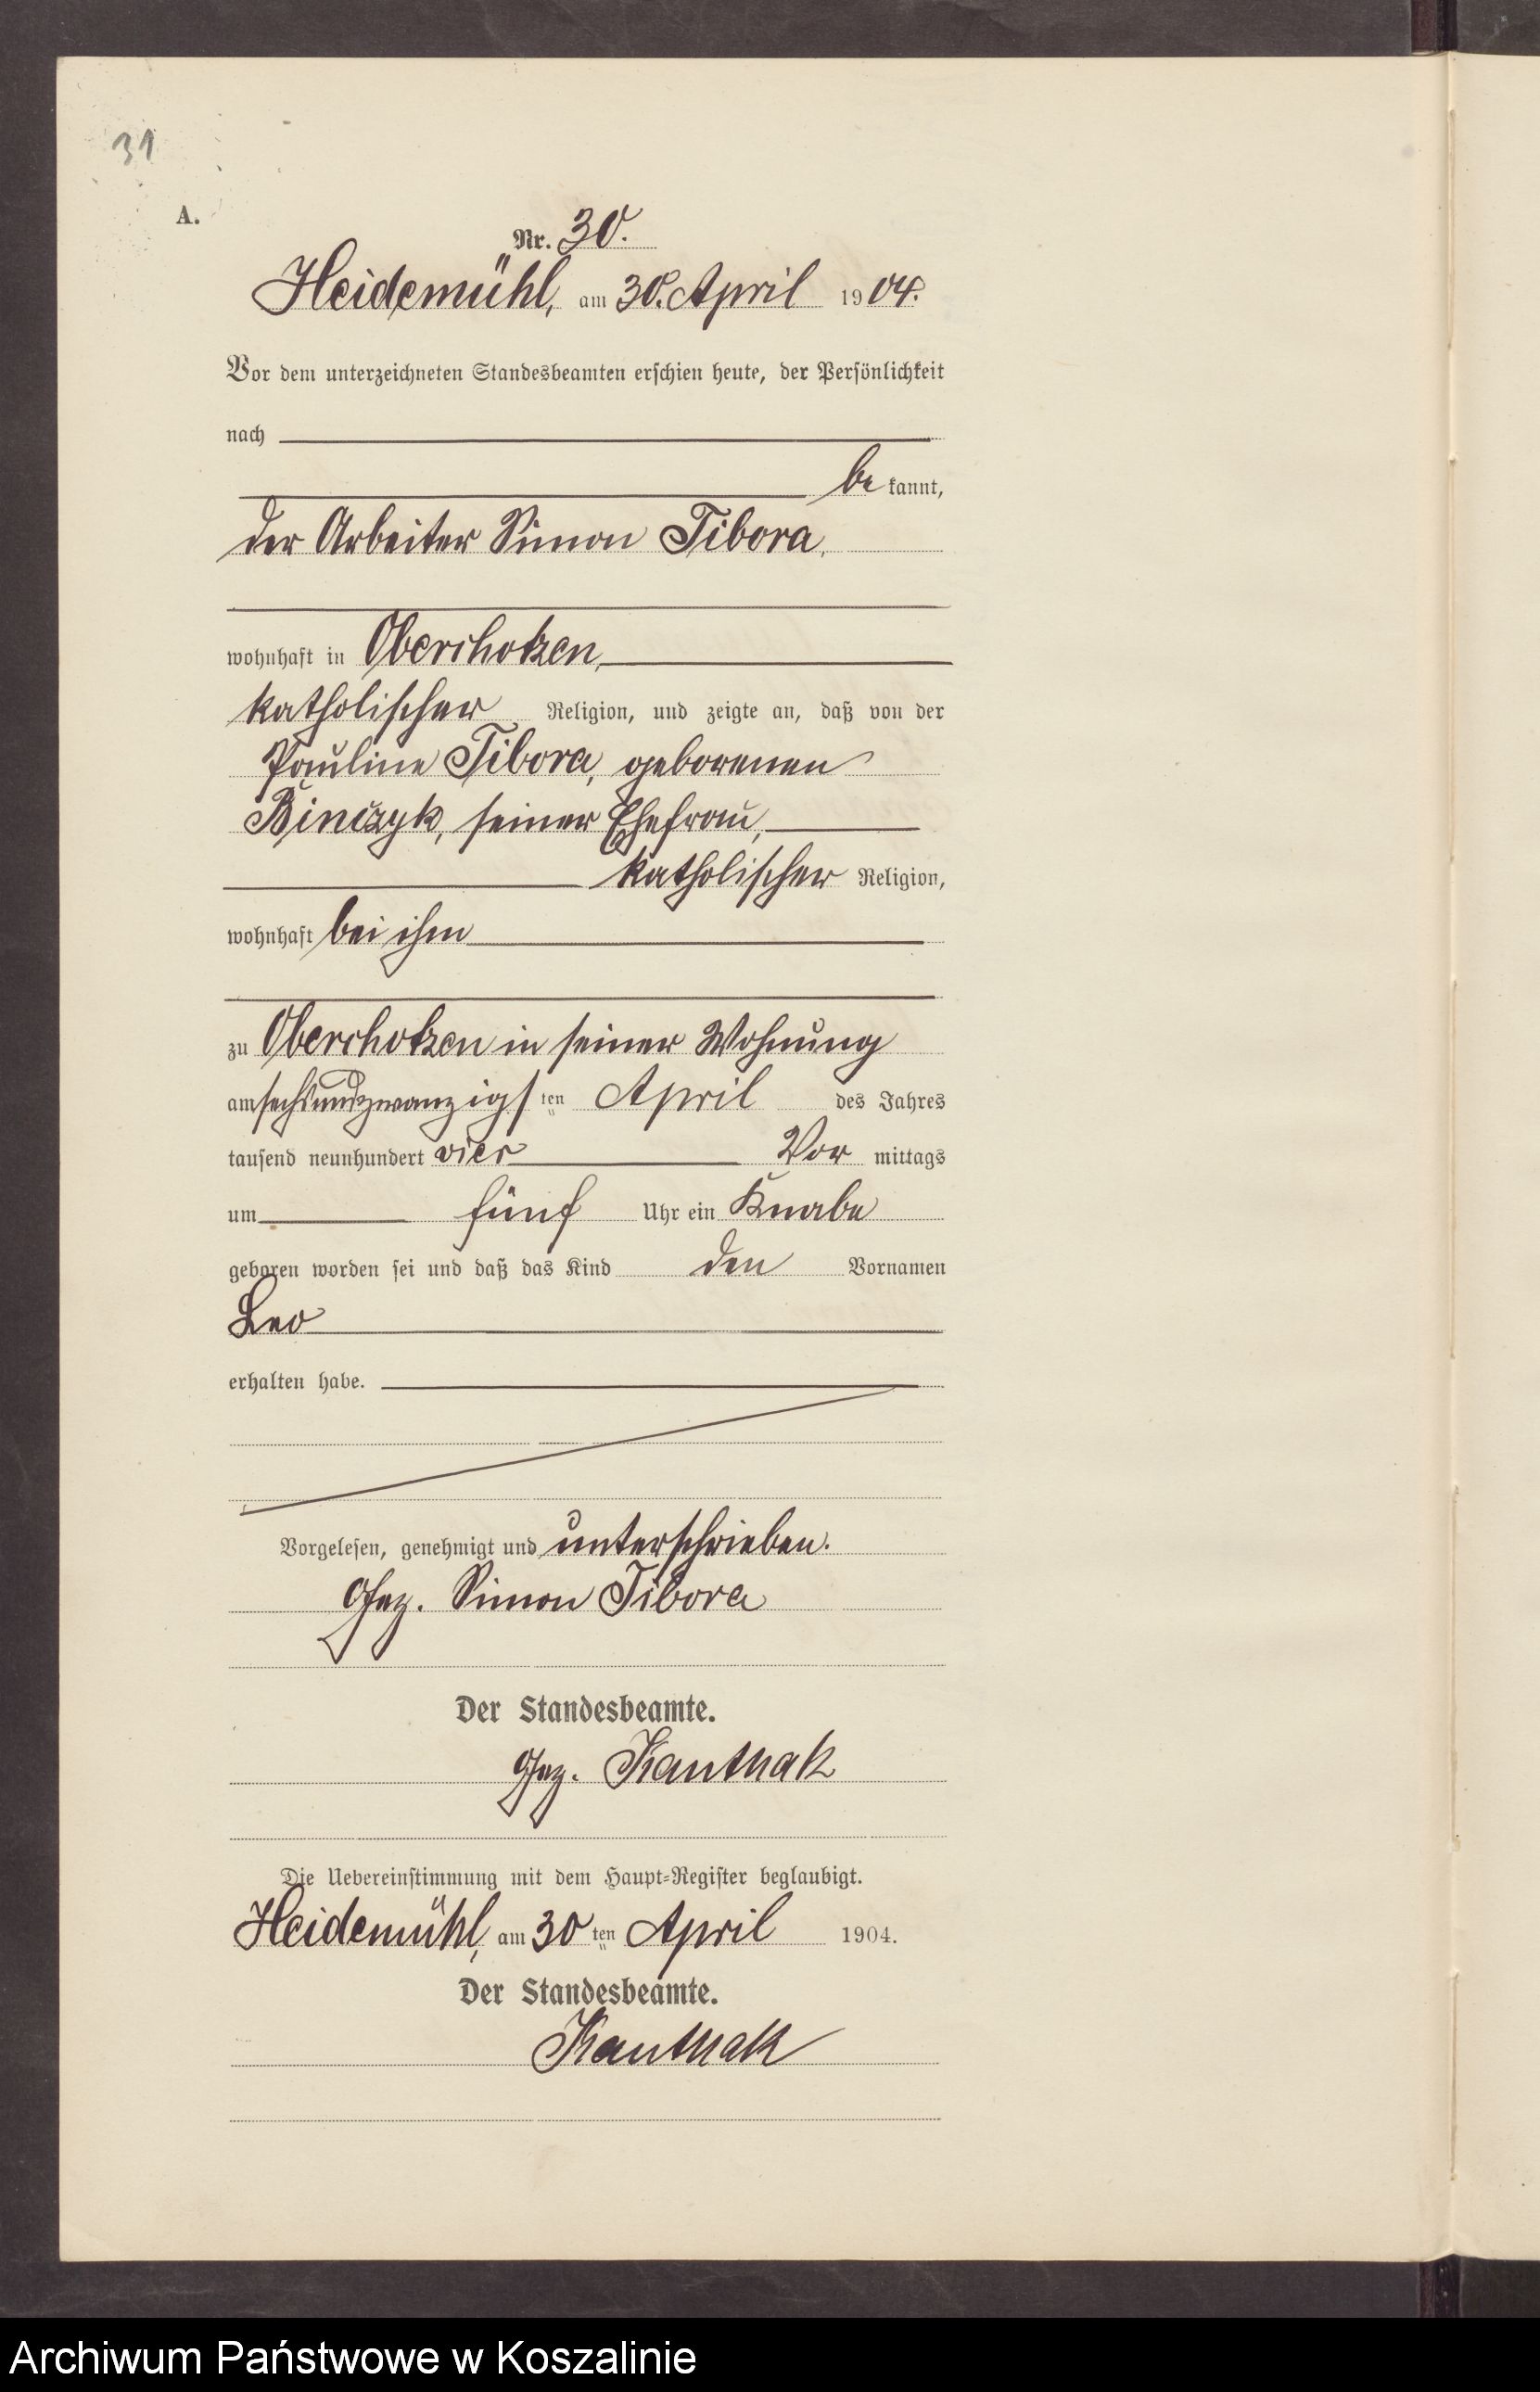 31
A.
Nr. 30.
Heidemühl, am 30. April 1904.
Vor dem unterzeichneten Standesbeamten erschien heute, der Persönlichkeit
nach
be kannt,
der Arbeiter Simon Tibora,
wohnhaft in Oberchotzen,
katholischer Religion, und zeigte an, daß von der
Pauline Tibora, geborenen
Binczyk, seiner Ehefrau,
katholischer Religion,
wohnhaft bei ihm
zu Oberchotzen in seiner Wohnung
am sechsundzwanzigsten April des Jahres
tausend neunhundert vier Vor mittags
um fünf Uhr ein Knabe
geboren worden sei und daß das Kind den Vornamen
Leo
erhalten habe.
Vorgelesen, genehmigt und unterschrieben.
Gez. Simon Tibora
Der Standesbeamte.
Gez. Kanthak
Die Uebereinstimmung mit dem Haupt-Register beglaubigt.
Heidemühl, am 30 ten April 1904.
Der Standesbeamte.
Kanthak
Archiwum Państwowe w Koszalinie